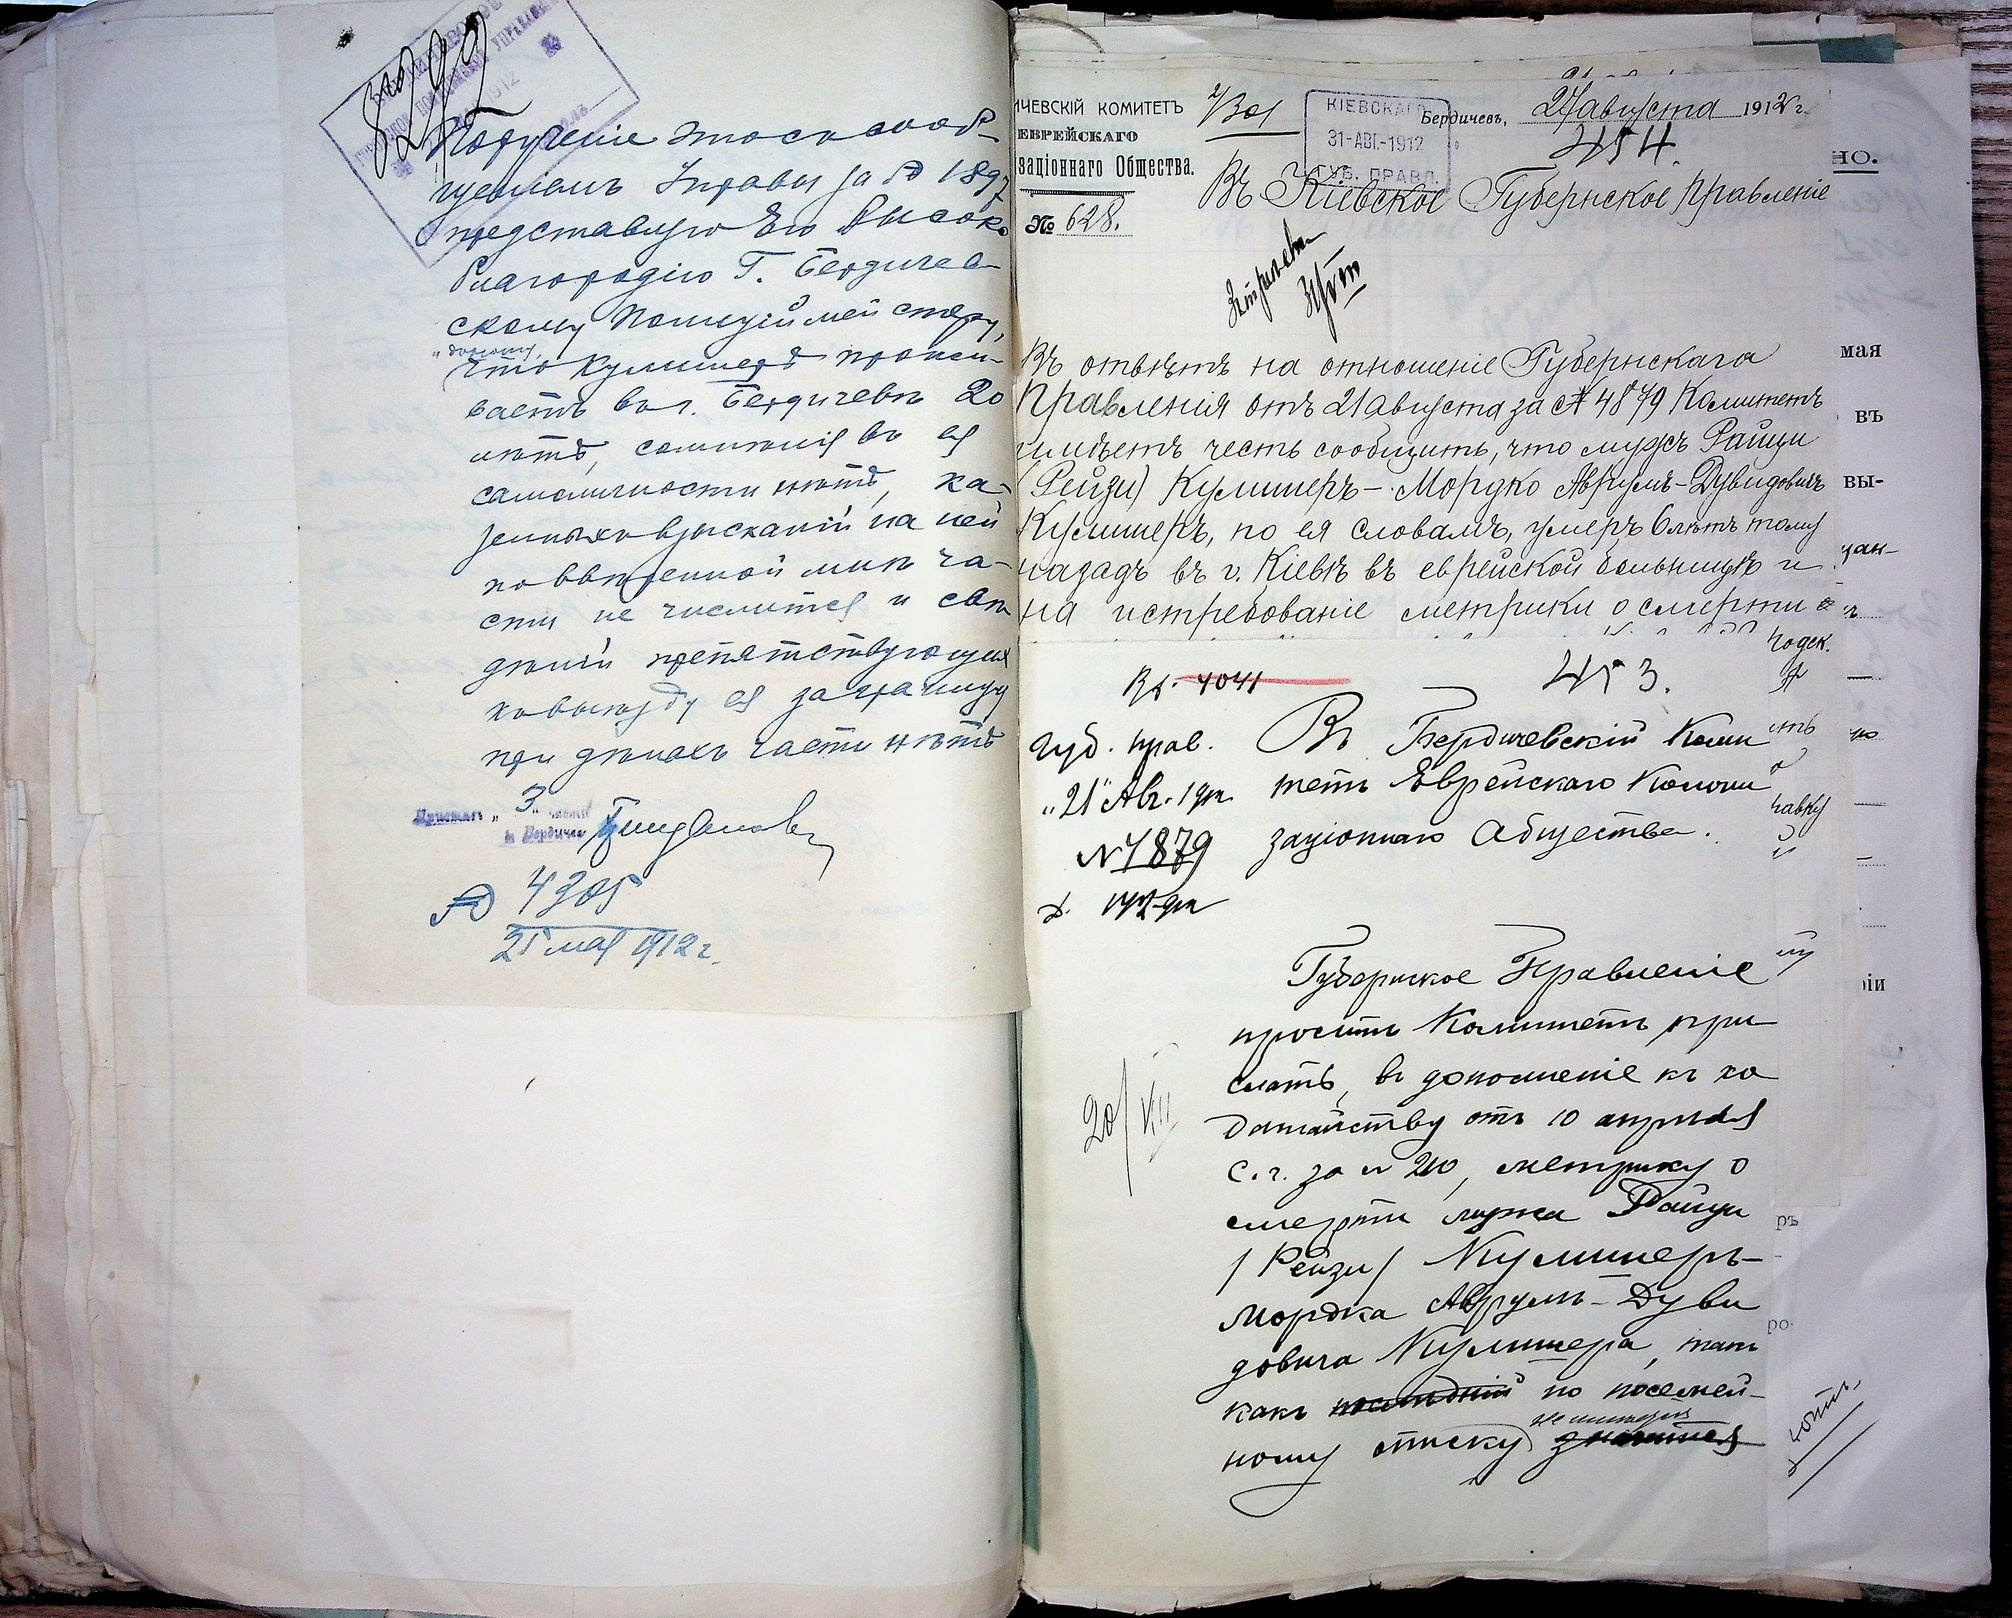 8292
Порученіе это сь сооб-
щеніемъ Управы за № 1897
представляю Его Высоко
благородію Г. Бердичев-
скому Полиціймейстеру,
что Кулишеръ прожи-
ваетъ въ г. Бердичевѣ 20
лѣтъ, сомнѣнія въ ея
самоличности нѣтъ, ка-
зенныхъ взысканій на ней
по ввѣренной мнѣ ча-
сти не числится и свѣ
дѣній препятствующихъ
къ выѣзду ея заграницу
при дѣлахъ части нѣтъ
Приставъ „3" части
г. Бердичева
№ 4305
25 мая 1912 г.
ИЧЕВСКІЙ КОМИТЕТЪ
ЕВРЕЙСКАГО
заціоннаго Общества.
№ 628.
КІЕВСКАГО
31-АВГ.-1912
ГУБ. ПРАВЛ.
Бердичевъ, 27 августа 1912 г.
454.
Въ Кіевское Губернское Правленіе
Въ отвѣтъ на отношеніе Губернскаго
Правленія отъ 21 августа за № 4879 Комитетъ
имѣетъ честь сообщить, что мужъ Райци
(Рейзи) Кулишеръ – Мордко Аврумъ-Дувидовичъ
Кулишеръ, по ея словамъ, умеръ 6 лѣтъ тому
назадъ въ г. Кіевѣ въ еврейской больницѣ и
на истребованіе метрики о смерти
453.
Вх. 4041
Губ. прав.
„21" Авг. 1912
№ 4879
Въ Бердичевскій Коми
тетъ Еврейскаго Колони
заціоннаго Общества.
Губернское Правленіе
проситъ Комитетъ при
слать, въ дополненіе къ хо
датайству отъ 10 апрѣля
с. г. за № 210, метрику о
смерти мужа Райци
/ Рейзи / Кулишеръ –
Мордка Аврумъ-Дуви
довича Кулишера, такъ
какъ послѣдній по посемей-
ному списку значится
20/XII
НО.
мая
въ
вы-
ро-
ръ